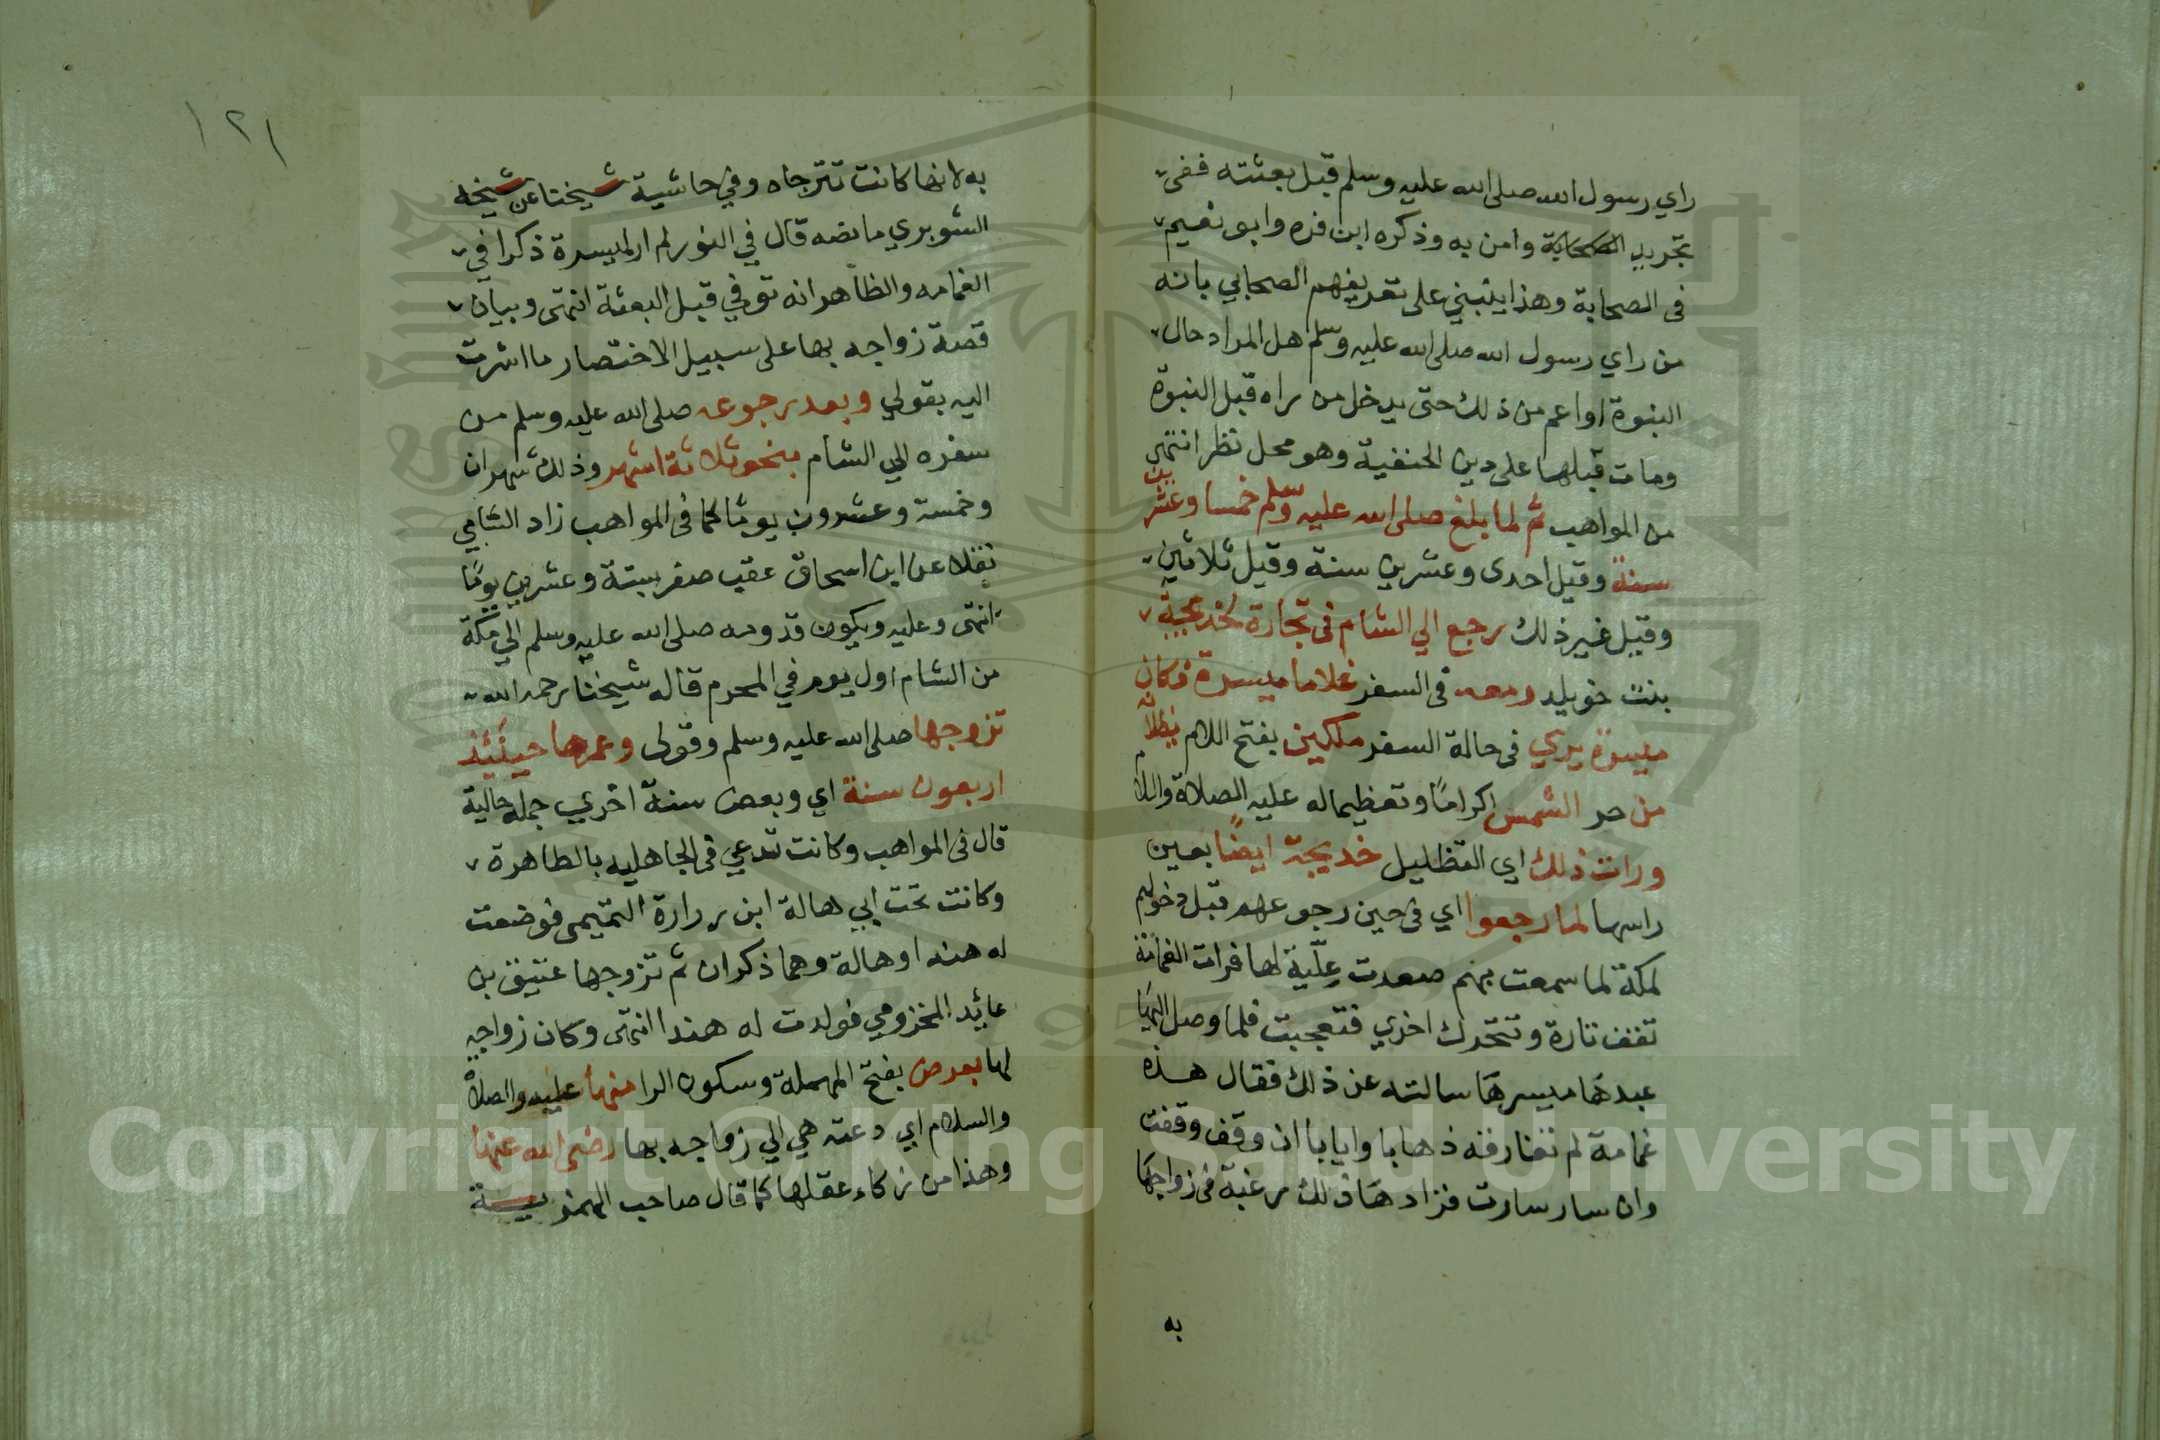 راي رسول الله صلى الله عليه وسلم قبل بعثته ففى
تجريد الصحابة وامن به وذكره ابن منده وابو نعيم
فى الصحابة وهذا ينبني على تعريفهم الصحابي بانه
من راي رسول الله صلى الله عليه وسلم هل المراد حال
النبوة او اعم من ذلك حتى يدخل من راه قبل النبوة
ومات قبلها على دين الحنفية وهو محل نظر انتهى
من المواهب ثم لما بلغ صلى الله عليه وسلم خمسا وعشرين
سنة وقيل احدى وعشرين سنة وقيل ثلاثين
وقيل غير ذلك رجع الي الشام فى تجارة لخديجة
بنت خويلد ومعه فى السفر غلاما ميسرة فكان
ميسرة يري فى حالة السفر ملكين بفتح اللام يظلانه
من حر الشمس اكراما وتعظيما له عليه الصلاة والسلام
ورات ذلك اي التظليل خديجة ايضا بعين
راسها لما رجعوا اي فى حين رجوعهم قبل دخولهم
لمكة لما سمعت بهم صعدت علّية لها فرات الغمامة
تقف تارة وتتحرك اخري فتعجبت فلما وصل اليها
عبدها ميسرها سالته عن ذلك فقال هذه
غمامة لم تفارقنه ذهابا وايابا ان وقف وقفت
وان سار سارت فزادها ذلك رغبة فى زواجها
به
١٢١
به لانها كانت تترجاه وفي حاشية شيخنا عن شيخه
الشوبري ما نصه قال في النور لم ار لميسرة ذكرا في
الغمامه والظاهر انه توفي قبل البعثة انتهى وبيان
قصة زواجه بها على سبيل الاختصار ما اشرت
اليه بقولي وبعد رجوعه صلى الله عليه وسلم من
سفره الي الشام بنحو ثلاثة اشهر وذلك شهران
وخمسة وعشرون يوما كما فى المواهب زاد الشامي
نقلا عن ابن اسحاق عقب صفر ستة وعشرين يوما
انتهى وعليه ويكون قدومه صلى الله عليه وسلم الي مكة
من الشام اول يوم في المحرم قاله شيخنا رحمه الله
تزوجها صلى الله عليه وسلم وقولى وعمرها حينئيذ
اربعون سنة اي وبعض سنة اخري جملة حالية
قال فى المواهب وكانت تدعي فى الجاهليه بالطاهرة
وكانت تحت ابي هالة ابن زرارة التميمى فوضعت
له هندا وهالة وهما ذكران ثم تزوجها عتيق بن
عائيد المخزومي فولدت له هندا انتهى وكان زواجه
لها بعرض بفتح المهملة وسكون الرا منها عليه والصلاة
والسلام اي دعته هي الي زواجه بها رضى الله عنها
وهذا من زكاء عقلها كما قال صاحب الهمزية